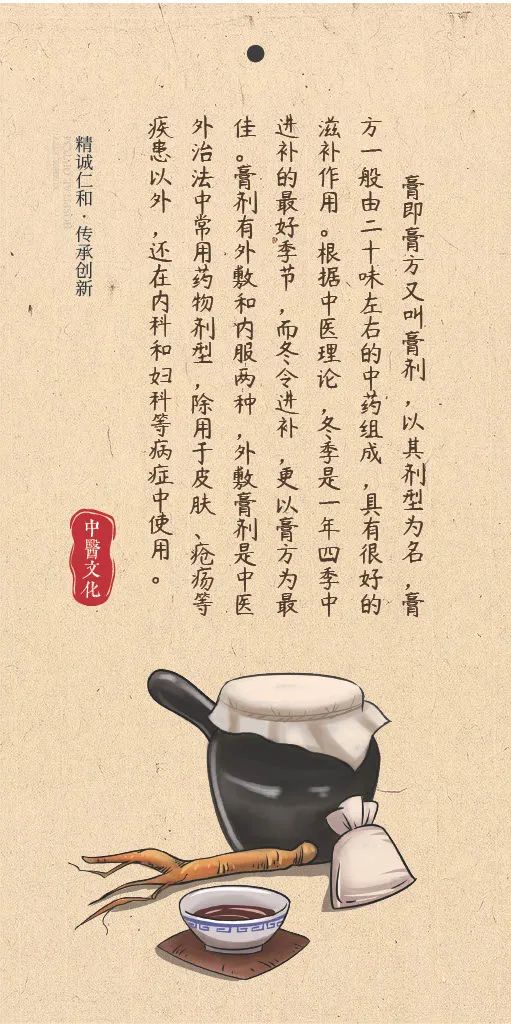 膏即膏方又叫膏剂，以其剂型为名，膏
方一般由二十味左右的中药组成，具有很好的
滋补作用。根据中医理论，冬季是一年四季中
进补的最好季节，而冬令进补，更以膏方为最
佳。膏剂有外敷和内服两种，外敷膏剂是中医
外治法中常用药物剂型，除用于皮肤、疮疡等
疾患以外，还在内科和妇科等病症中使用。
精诚仁和·传承创新
中醫文化